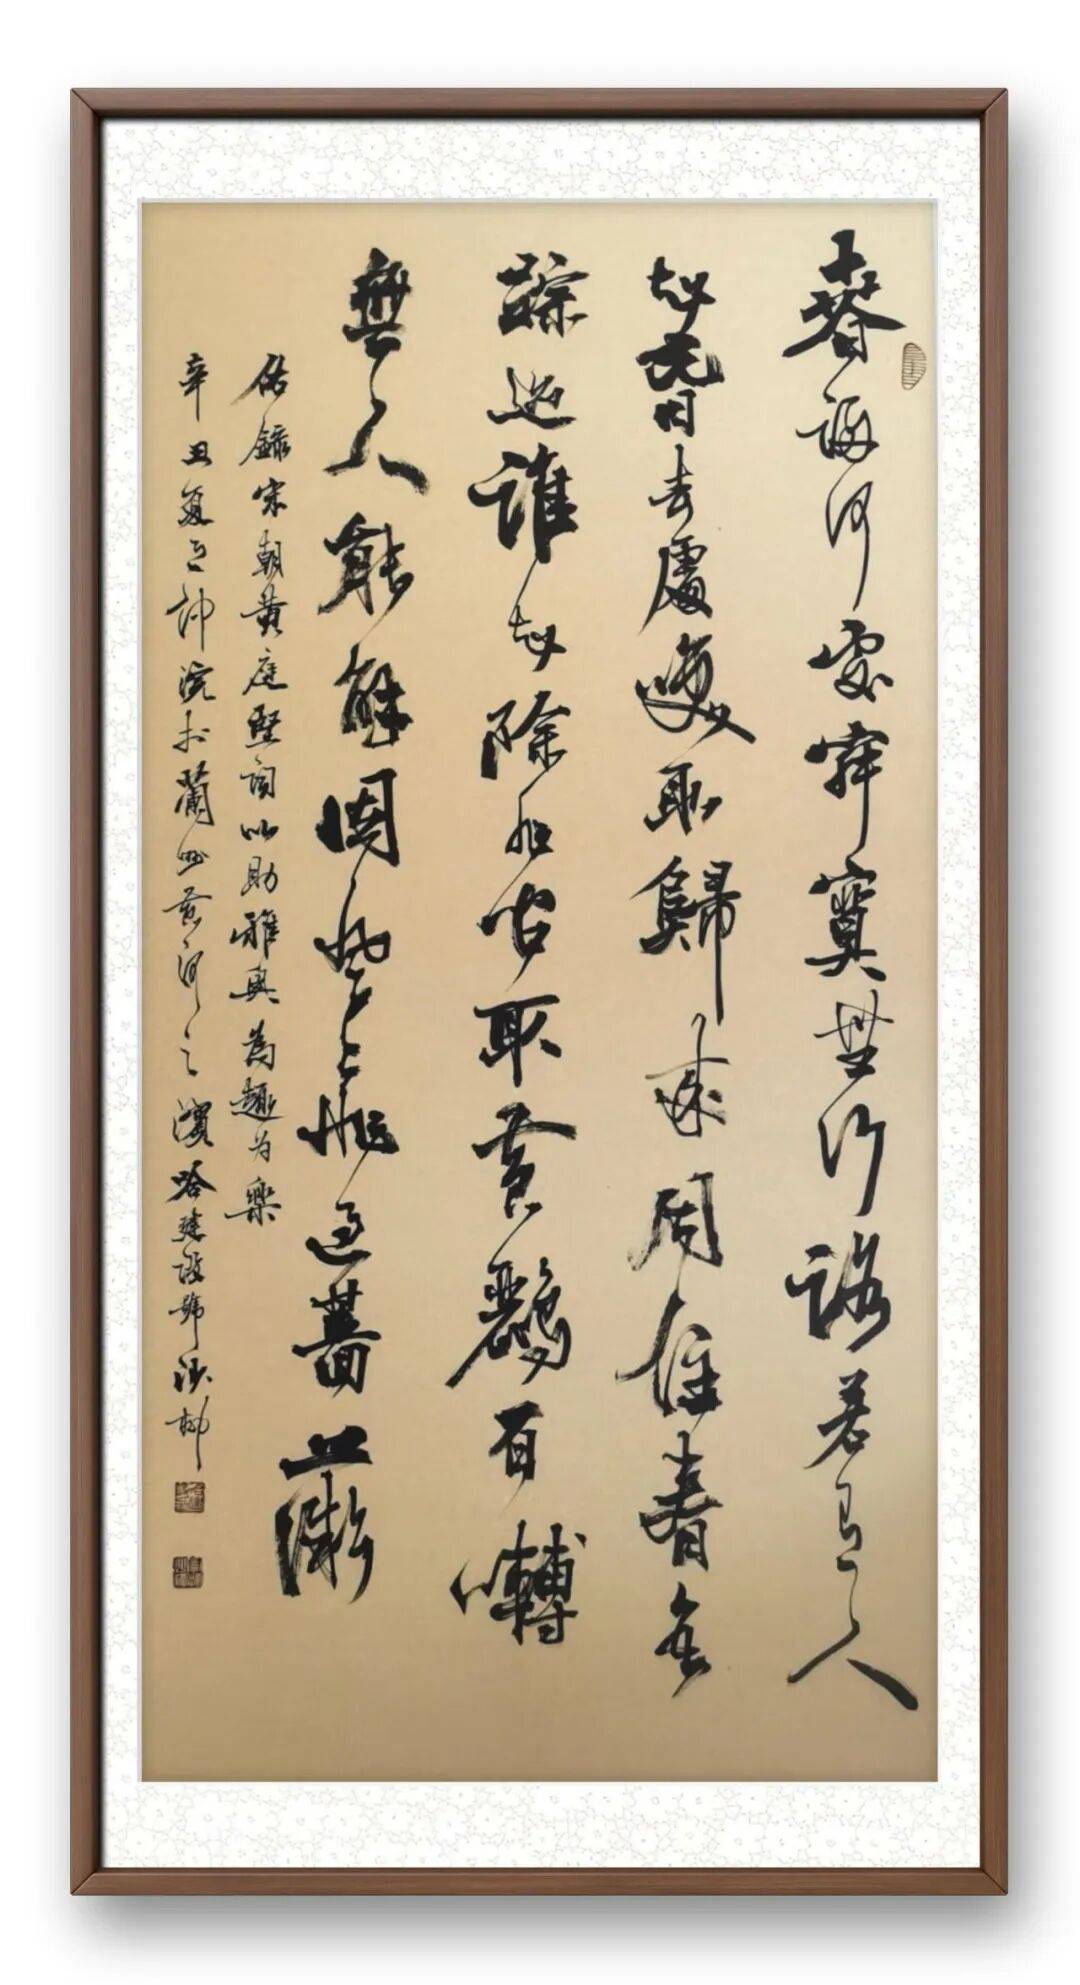 春歸何處寂寞無行路若有人
知春去處喚取歸來同住春無
踪迹誰知除非問取黄鸝百囀
無人能解因風飛過薔薇
錄宋朝黄庭堅詞以助雅興為趣为樂
辛丑夏之浣於蘭州黄河之濱建設號